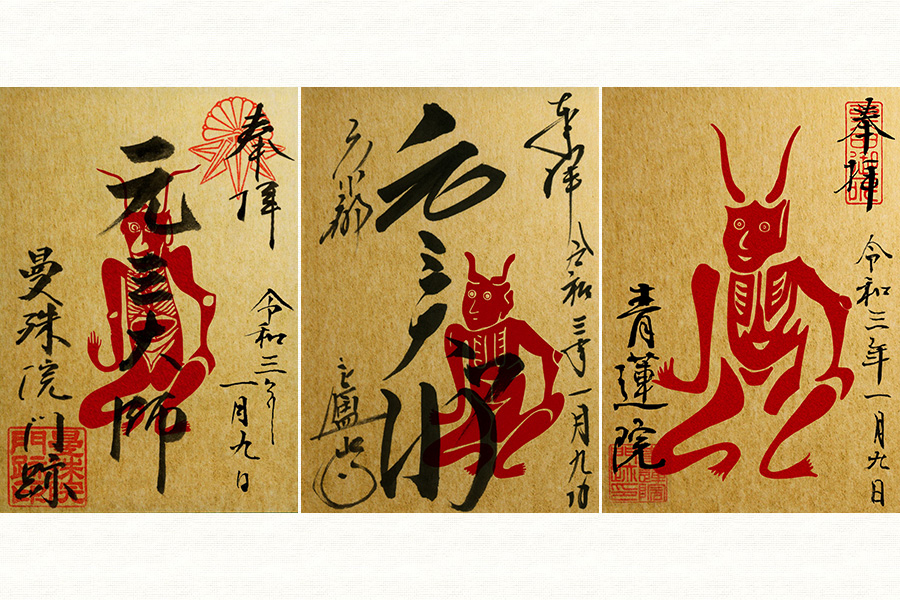 奉拝
令和三年
一月九日
元三大師
曼殊院門跡
奉拝
令和三年一月九日
元三大師
廬山寺
奉拝
令和三年一月九日
青蓮院